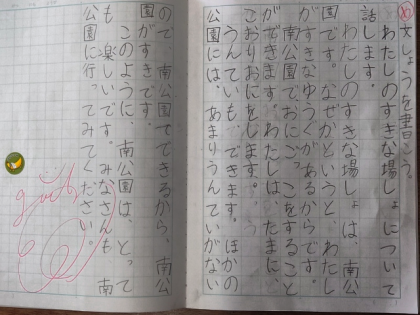 文しょうを書こう。
わたしのすきな場しょについて
話します。
わたしのすきな場しょは、南公
園です。なぜかというと、わたし
がすきなゆうぐがあるからです。
南公園でおにごっこをすること
ができます。わたしは、たまに、
こおりおにをします。
うんていも、できます。ほかの
公園には、あまりうんていがない
ので、南公園でできるから、南公
園がすきです。
このように、南公園は、とって
も楽しいです。みなさんも、南
公園に行ってみてください。